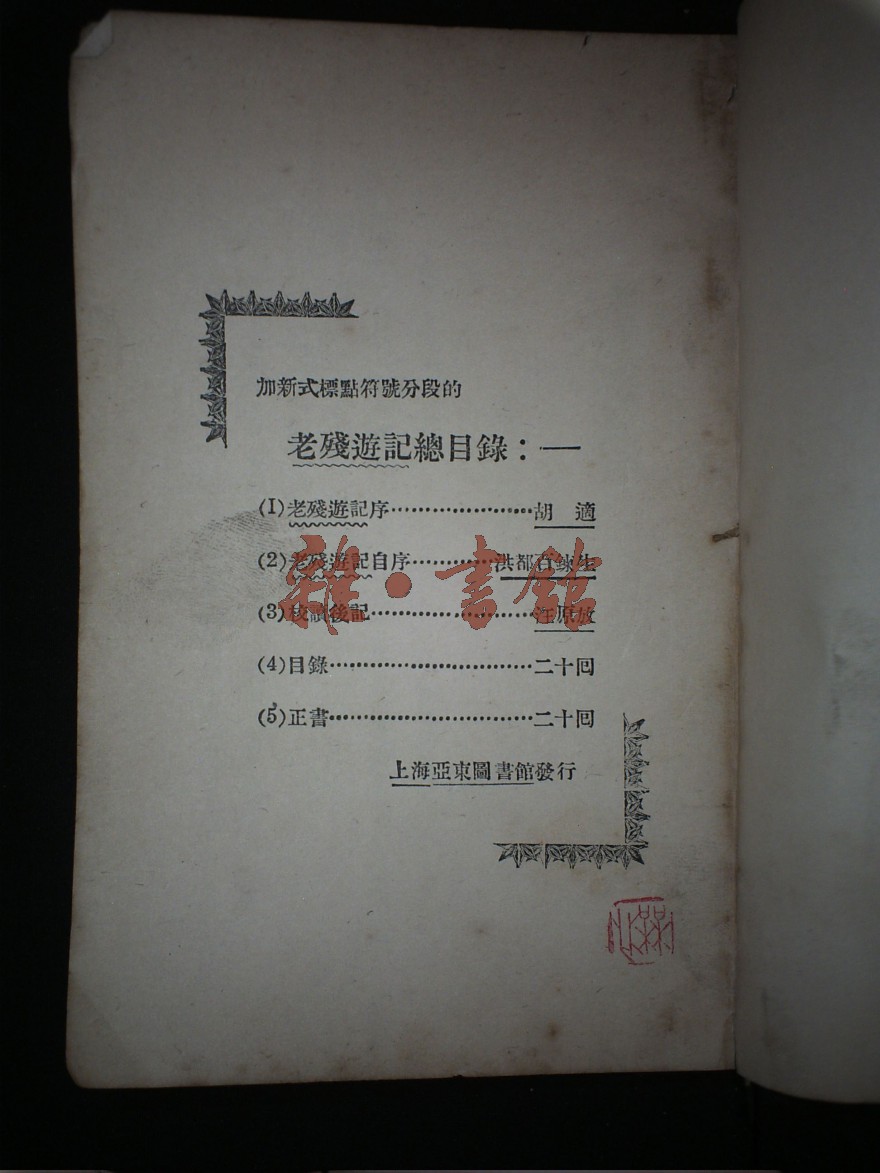 加新式標點符號分段的
老殘遊記總目錄：—
(1)老殘遊記序……………………胡　適
(2)老殘遊記自序…………洪都百鍊生
(3)校讀後記……………………汪原放
(4)目錄……………………………二十囘
(5)正書……………………………二十囘
上海亞東圖書館發行
雜·書館